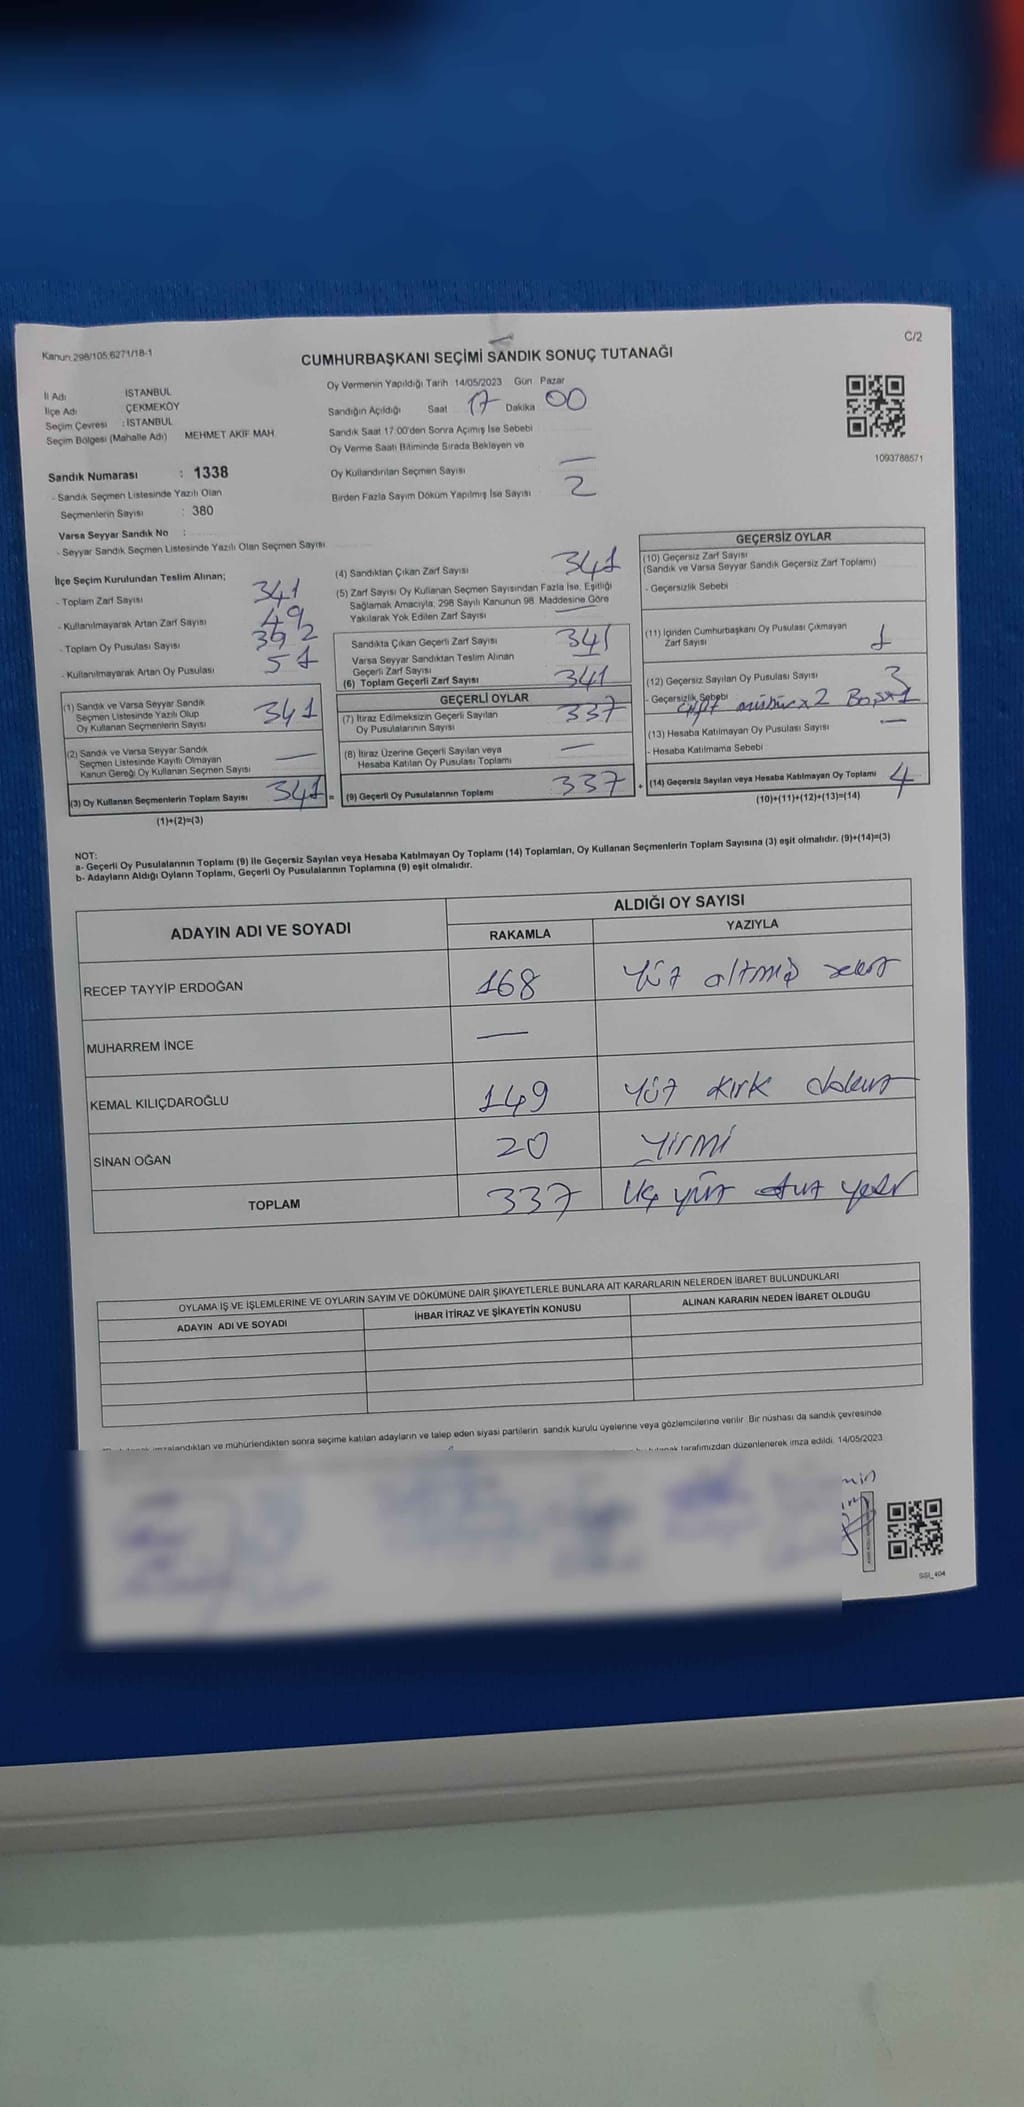 Kanun:298/105;6271/18-1
C/2
CUMHURBAŞKANI SEÇİMİ SANDIK SONUÇ TUTANAĞI
İl Adı İSTANBUL
İlçe Adı ÇEKMEKÖY
Seçim Çevresi : İSTANBUL
Seçim Bölgesi (Mahalle Adı) MEHMET AKİF MAH.
Sandık Numarası : 1338
- Sandık Seçmen Listesinde Yazılı Olan
Seçmenlerin Sayısı : 380
Varsa Seyyar Sandık No :
- Seyyar Sandık Seçmen Listesinde Yazılı Olan Seçmen Sayısı
Oy Vermenin Yapıldığı Tarih 14/05/2023 Gün Pazar
Sandığın Açıldığı Saat 17 Dakika 00
Sandık Saat 17:00'den Sonra Açılmış İse Sebebi
Oy Verme Saati Bitiminde Sırada Bekleyen ve
Oy Kullandırılan Seçmen Sayısı —
Birden Fazla Sayım Döküm Yapılmış İse Sayısı 2
1093788571
İlçe Seçim Kurulundan Teslim Alınan;
- Toplam Zarf Sayısı 341
- Kullanılmayarak Artan Zarf Sayısı 49
- Toplam Oy Pusulası Sayısı 392
- Kullanılmayarak Artan Oy Pusulası 51
(1) Sandık ve Varsa Seyyar Sandık
Seçmen Listesinde Yazılı Olup
Oy Kullanan Seçmenlerin Sayısı 341
(2) Sandık ve Varsa Seyyar Sandık
Seçmen Listesinde Kayıtlı Olmayan
Kanun Gereği Oy Kullanan Seçmen Sayısı —
(3) Oy Kullanan Seçmenlerin Toplam Sayısı 341 =
(1)+(2)=(3)
(4) Sandıktan Çıkan Zarf Sayısı 341
(5) Zarf Sayısı Oy Kullanan Seçmen Sayısından Fazla İse, Eşitliği
Sağlamak Amacıyla, 298 Sayılı Kanunun 98. Maddesine Göre
Yakılarak Yok Edilen Zarf Sayısı —
Sandıkta Çıkan Geçerli Zarf Sayısı 341
Varsa Seyyar Sandıktan Teslim Alınan
Geçerli Zarf Sayısı
(6) Toplam Geçerli Zarf Sayısı 341
GEÇERLİ OYLAR
(7) İtiraz Edilmeksizin Geçerli Sayılan
Oy Pusulalarının Sayısı 337
(8) İtiraz Üzerine Geçerli Sayılan veya
Hesaba Katılan Oy Pusulası Toplamı —
(9) Geçerli Oy Pusulalarının Toplamı 337 +
GEÇERSİZ OYLAR
(10) Geçersiz Zarf Sayısı
(Sandık ve Varsa Seyyar Sandık Geçersiz Zarf Toplamı)
- Geçersizlik Sebebi
(11) İçinden Cumhurbaşkanı Oy Pusulası Çıkmayan
Zarf Sayısı 1
(12) Geçersiz Sayılan Oy Pusulası Sayısı 3
- Geçersizlik Sebebi x2 Boş x1
(13) Hesaba Katılmayan Oy Pusulası Sayısı —
- Hesaba Katılmama Sebebi
(14) Geçersiz Sayılan veya Hesaba Katılmayan Oy Toplamı 4
(10)+(11)+(12)+(13)=(14)
NOT:
a- Geçerli Oy Pusulalarının Toplamı (9) ile Geçersiz Sayılan veya Hesaba Katılmayan Oy Toplamı (14) Toplamları, Oy Kullanan Seçmenlerin Toplam Sayısına (3) eşit olmalıdır. (9)+(14)=(3)
b- Adayların Aldığı Oyların Toplamı, Geçerli Oy Pusulalarının Toplamına (9) eşit olmalıdır.
ADAYIN ADI VE SOYADI
ALDIĞI OY SAYISI
RAKAMLA YAZIYLA
RECEP TAYYİP ERDOĞAN 168 Yüz altmış sekiz
MUHARREM İNCE —
KEMAL KILIÇDAROĞLU 149 Yüz kırk dokuz
SİNAN OĞAN 20 Yirmi
TOPLAM 337 Üç yüz otuz yedi
OYLAMA İŞ VE İŞLEMLERİNE VE OYLARIN SAYIM VE DÖKÜMÜNE DAİR ŞİKAYETLERLE BUNLARA AİT KARARLARIN NELERDEN İBARET BULUNDUKLARI
ADAYIN ADI VE SOYADI İHBAR İTİRAZ VE ŞİKAYETİN KONUSU ALINAN KARARIN NEDEN İBARET OLDUĞU
imzalandıktan ve mühürlendikten sonra seçime katılan adayların ve talep eden siyasi partilerin sandık kurulu üyelerine veya gözlemcilerine verilir. Bir nüshası da sandık çevresinde
tarafımızdan düzenlenerek imza edildi. 14/05/2023
SSI_404